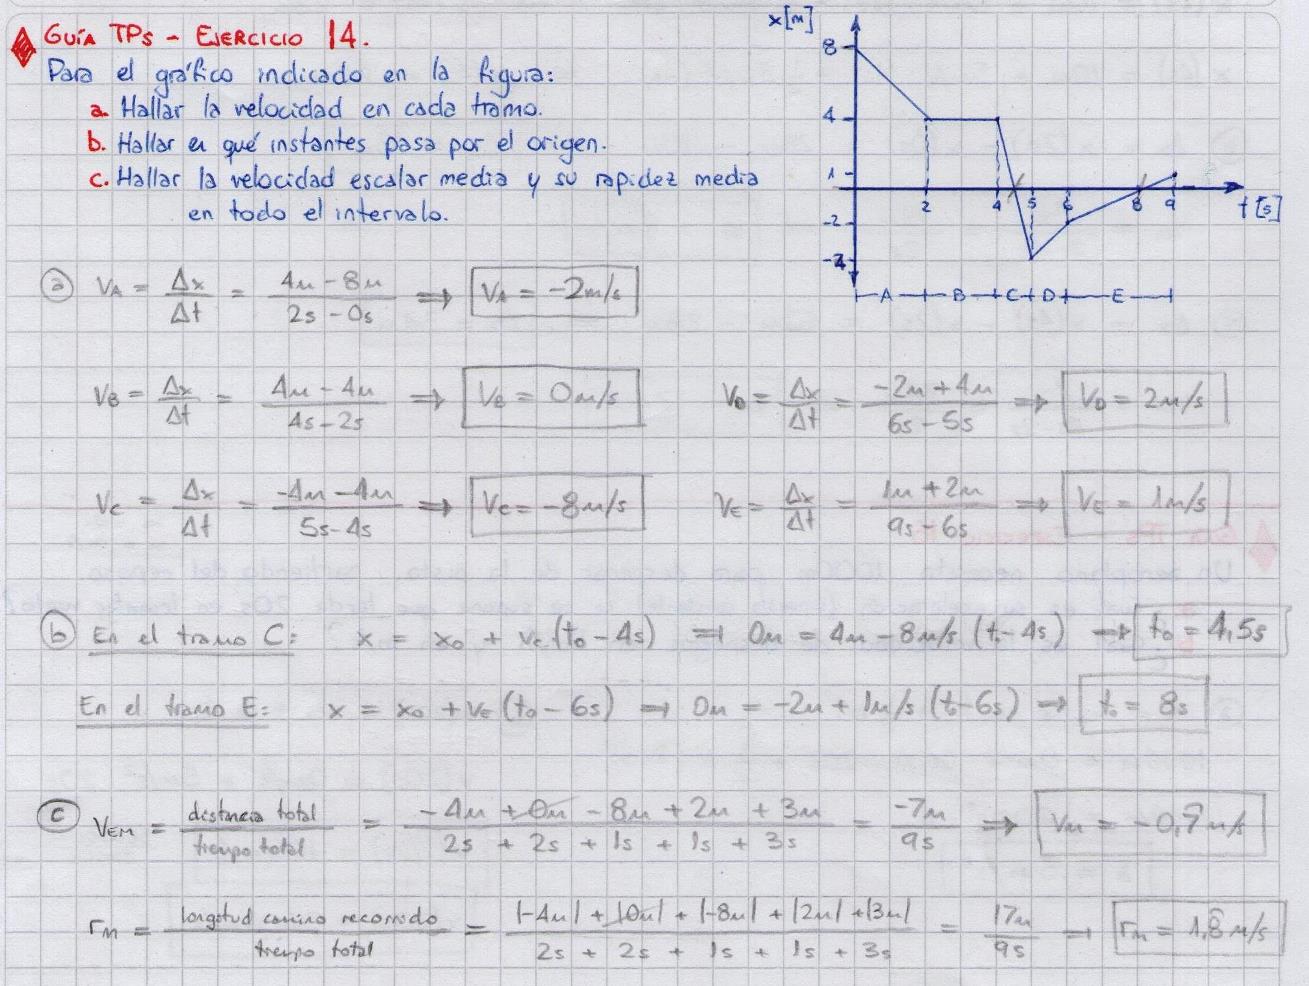 GUÍA TPS - EJERCICIO 14.
Para el gráfico indicado en la figura:
a. Hallar la velocidad en cada tramo.
b. Hallar en qué instantes pasa por el origen.
c. Hallar la velocidad escalar media y su rapidez media
en todo el intervalo.
x[m]
8
4
1
-2
-4
2 4 5 6 8 9
t[s]
A B C D E
a VA = Δx/Δt = (4m - 8m)/(2s - 0s) ⟹ VA = -2m/s
VB = Δx/Δt = (4m - 4m)/(4s - 2s) ⟹ VB = 0m/s
VD = Δx/Δt = (-2m + 4m)/(6s - 5s) ⟹ VD = 2m/s
VC = Δx/Δt = (-4m - 4m)/(5s - 4s) ⟹ VC = -8m/s
VE = Δx/Δt = (1m + 2m)/(9s - 6s) ⟹ VE = 1m/s
b En el tramo C: x = x0 + vc.(t0 - 4s) ⟹ 0m = 4m - 8m/s (t0 - 4s) ⟹ t0 = 4,5s
En el tramo E: x = x0 + VE (t0 - 6s) ⟹ 0m = -2m + 1m/s (t0 - 6s) ⟹ t0 = 8s
c VEM = distancia total/tiempo total = (-4m + 0m - 8m + 2m + 3m)/(2s + 2s + 1s + 1s + 3s) = -7m/9s ⟹ VM = -0,7m/s
rM = longitud camino recorrido/tiempo total = (|-4m| + |0m| + |-8m| + |2m| + |3m|)/(2s + 2s + 1s + 1s + 3s) = 17m/9s ⟹ rM = 1,8 m/s